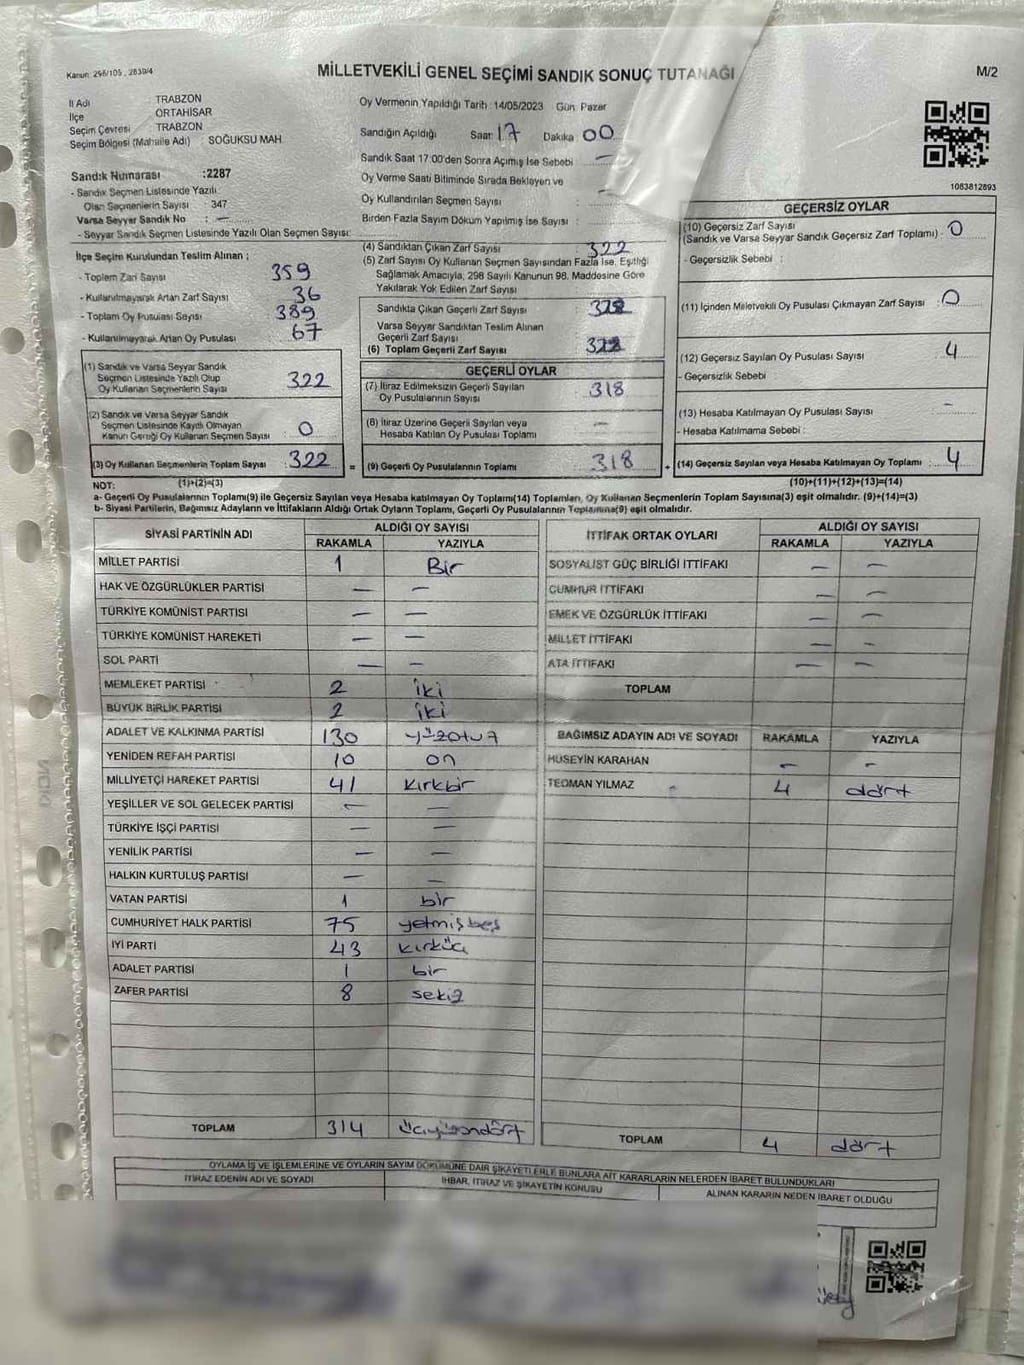 Kanun: 298/105 , 2839/4
MİLLETVEKİLİ GENEL SEÇİMİ SANDIK SONUÇ TUTANAĞI
M/2
İl Adı TRABZON
İlçe ORTAHİSAR
Seçim Çevresi TRABZON
Seçim Bölgesi (Mahalle Adı) : SOĞUKSU MAH.
Sandık Numarası :2287
- Sandık Seçmen Listesinde Yazılı
Olan Seçmenlerin Sayısı 347
Varsa Seyyar Sandık No : —
- Seyyar Sandık Seçmen Listesinde Yazılı Olan Seçmen Sayısı:
Oy Vermenin Yapıldığı Tarih: 14/05/2023 Gün: Pazar
Sandığın Açıldığı Saat 17 Dakika 00
Sandık Saat 17:00'den Sonra Açımış İse Sebebi : —
Oy Verme Saati Bitiminde Sırada Bekleyen ve
Oy Kullandırılan Seçmen Sayısı : —
Birden Fazla Sayım Döküm Yapılmış İse Sayısı :
1083812893
İlçe Seçim Kurulundan Teslim Alınan ;
- Toplam Zarf Sayısı 359
- Kullanılmayarak Artan Zarf Sayısı 36
- Toplam Oy Pusulası Sayısı 389
- Kullanılmayarak Artan Oy Pusulası 67
(1) Sandık ve Varsa Seyyar Sandık
Seçmen Listesinde Yazılı Olup
Oy Kullanan Seçmenlerin Sayısı 322
(2) Sandık ve Varsa Seyyar Sandık
Seçmen Listesinde Kayıtlı Olmayan
Kanun Gereği Oy Kullanan Seçmen Sayısı 0
(3) Oy Kullanan Seçmenlerin Toplam Sayısı 322 =
(1)+(2)=(3)
(4) Sandıktan Çıkan Zarf Sayısı : 322
(5) Zarf Sayısı Oy Kullanan Seçmen Sayısından Fazla İse, Eşitliği
Sağlamak Amacıyla, 298 Sayılı Kanunun 98. Maddesine Göre
Yakılarak Yok Edilen Zarf Sayısı :
Sandıkta Çıkan Geçerli Zarf Sayısı : 322
Varsa Seyyar Sandıktan Teslim Alınan
Geçerli Zarf Sayısı :
(6) Toplam Geçerli Zarf Sayısı : 322
GEÇERLİ OYLAR
(7) İtiraz Edilmeksizin Geçerli Sayılan
Oy Pusulalarının Sayısı : 318
(8) İtiraz Üzerine Geçerli Sayılan veya
Hesaba Katılan Oy Pusulası Toplamı : —
(9) Geçerli Oy Pusulalarının Toplamı 318 +
GEÇERSİZ OYLAR
(10) Geçersiz Zarf Sayısı
(Sandık ve Varsa Seyyar Sandık Geçersiz Zarf Toplamı) : 0
- Geçersizlik Sebebi :
(11) İçinden Milletvekili Oy Pusulası Çıkmayan Zarf Sayısı : 0
(12) Geçersiz Sayılan Oy Pusulası Sayısı : 4
- Geçersizlik Sebebi
(13) Hesaba Katılmayan Oy Pusulası Sayısı : —
- Hesaba Katılmama Sebebi :
(14) Geçersiz Sayılan veya Hesaba Katılmayan Oy Toplamı : 4
(10)+(11)+(12)+(13)=(14)
NOT:
a- Geçerli Oy Pusulalarının Toplamı(9) ile Geçersiz Sayılan veya Hesaba katılmayan Oy Toplamı(14) Toplamları, Oy Kullanan Seçmenlerin Toplam Sayısına(3) eşit olmalıdır. (9)+(14)=(3)
b- Siyasi Partilerin, Bağımsız Adayların ve İttifakların Aldığı Ortak Oyların Toplamı, Geçerli Oy Pusulalarının Toplamına(9) eşit olmalıdır.
SİYASİ PARTİNİN ADI ALDIĞI OY SAYISI
RAKAMLA YAZIYLA
MİLLET PARTİSİ 1 Bir
HAK VE ÖZGÜRLÜKLER PARTİSİ — —
TÜRKİYE KOMÜNİST PARTİSİ — —
TÜRKİYE KOMÜNİST HAREKETİ — —
SOL PARTİ — —
MEMLEKET PARTİSİ 2 iki
BÜYÜK BİRLİK PARTİSİ 2 iki
ADALET VE KALKINMA PARTİSİ 130 yüzotuz
YENİDEN REFAH PARTİSİ 10 on
MİLLİYETÇİ HAREKET PARTİSİ 41 kırkbir
YEŞİLLER VE SOL GELECEK PARTİSİ — —
TÜRKİYE İŞÇİ PARTİSİ — —
YENİLİK PARTİSİ — —
HALKIN KURTULUŞ PARTİSİ — —
VATAN PARTİSİ 1 bir
CUMHURİYET HALK PARTİSİ 75 yetmişbeş
İYİ PARTİ 43 kırküç
ADALET PARTİSİ 1 bir
ZAFER PARTİSİ 8 sekiz
TOPLAM 314 üçyüzondört
İTTİFAK ORTAK OYLARI ALDIĞI OY SAYISI
RAKAMLA YAZIYLA
SOSYALİST GÜÇ BİRLİĞİ İTTİFAKI — —
CUMHUR İTTİFAKI — —
EMEK VE ÖZGÜRLÜK İTTİFAKI — —
MİLLET İTTİFAKI — —
ATA İTTİFAKI — —
TOPLAM
BAĞIMSIZ ADAYIN ADI VE SOYADI RAKAMLA YAZIYLA
HÜSEYİN KARAHAN — —
TEOMAN YILMAZ 4 dört
TOPLAM 4 dört
OYLAMA İŞ VE İŞLEMLERİNE VE OYLARIN SAYIM DÖKÜMÜNE DAİR ŞİKAYETLERLE BUNLARA AİT KARARLARIN NELERDEN İBARET BULUNDUKLARI
İTİRAZ EDENİN ADI VE SOYADI İHBAR, İTİRAZ VE ŞİKAYETİN KONUSU ALINAN KARARIN NEDEN İBARET OLDUĞU